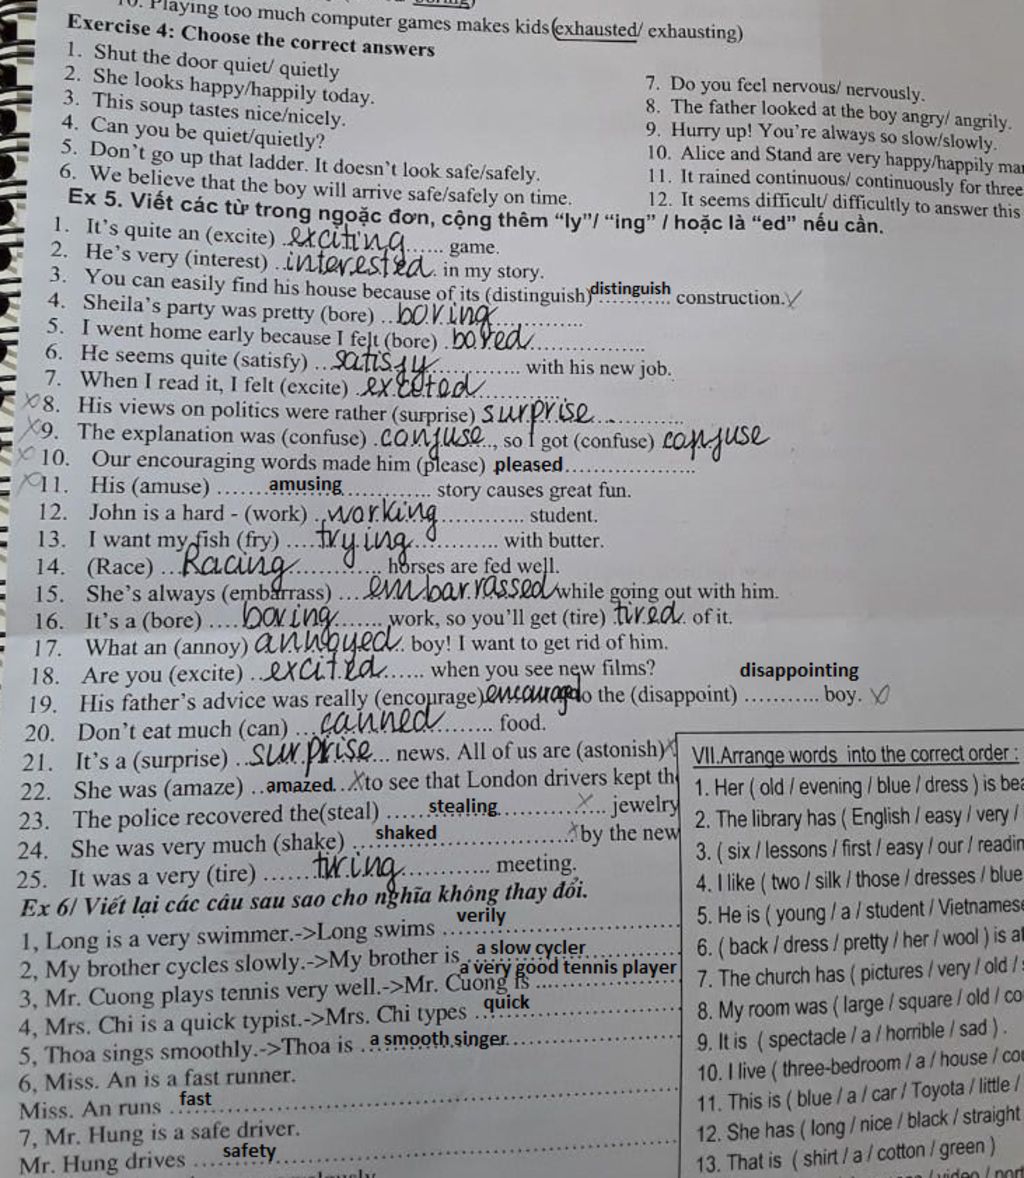 10. Playing too much computer games makes kids (exhausted/ exhausting)
Exercise 4: Choose the correct answers
1. Shut the door quiet/ quietly
2. She looks happy/happily today.
3. This soup tastes nice/nicely.
4. Can you be quiet/quietly?
5. Don't go up that ladder. It doesn't look safe/safely.
6. We believe that the boy will arrive safe/safely on time.
7. Do you feel nervous/ nervously.
8. The father looked at the boy angry/ angrily.
9. Hurry up! You're always so slow/slowly.
10. Alice and Stand are very happy/happily
11. It rained continuous/ continuously for three
12. It seems difficult/ difficultly to answer this
Ex 5. Viết các từ trong ngoặc đơn, cộng thêm "ly"/ "ing" / hoặc là "ed" nếu cần.
1. It's quite an (excite) exciting game.
2. He's very (interest) interested in my story.
3. You can easily find his house because of its (distinguish) distinguish construction.
4. Sheila's party was pretty (bore) boring
5. I went home early because I felt (bore) bored
6. He seems quite (satisfy) satisfy with his new job.
7. When I read it, I felt (excite) excited
8. His views on politics were rather (surprise) surprise
9. The explanation was (confuse) confuse, so I got (confuse) confuse
10. Our encouraging words made him (please) pleased
11. His (amuse) amusing story causes great fun.
12. John is a hard - (work) working student.
13. I want my fish (fry) frying with butter.
14. (Race) Racing horses are fed well.
15. She's always (embarrass) embarrassed while going out with him.
16. It's a (bore) boring work, so you'll get (tire) tired of it.
17. What an (annoy) annoyed boy! I want to get rid of him.
18. Are you (excite) excited when you see new films?
19. His father's advice was really (encourage) to the (disappoint) disappointing boy.
20. Don't eat much (can) canned food.
21. It's a (surprise) surprise news. All of us are (astonish)
22. She was (amaze) amazed to see that London drivers kept
23. The police recovered the(steal) stealing jewelry
24. She was very much (shake) shaked by the new
25. It was a very (tire) tiring meeting.
Ex 6/ Viết lại các câu sau sao cho nghĩa không thay đổi.
1, Long is a very swimmer.->Long swims verily
2, My brother cycles slowly.->My brother is a slow cycler
3, Mr. Cuong plays tennis very well.->Mr. Cuong is a very good tennis player
4, Mrs. Chi is a quick typist.->Mrs. Chi types quick
5, Thoa sings smoothly.->Thoa is a smooth singer
6, Miss. An is a fast runner.
Miss. An runs fast
7, Mr. Hung is a safe driver.
Mr. Hung drives safety
VII.Arrange words into the correct order :
1. Her ( old / evening / blue / dress ) is
2. The library has ( English / easy / very /
3. ( six / lessons / first / easy / our /
4. I like ( two / silk / those / dresses / blue
5. He is ( young / a / student / Vietnamese
6. ( back / dress / pretty / her / wool ) is
7. The church has ( pictures / very / old /
8. My room was ( large / square / old /
9. It is ( spectacle / a / horrible / sad ) .
10. I live ( three-bedroom / a / house /
11. This is ( blue / a / car / Toyota / little /
12. She has ( long / nice / black / straight
13. That is ( shirt / a / cotton / green )